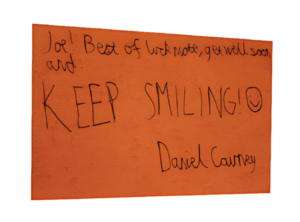 Joe! Best of luck mate, get well soon,
and
KEEP SMILING!
Daniel